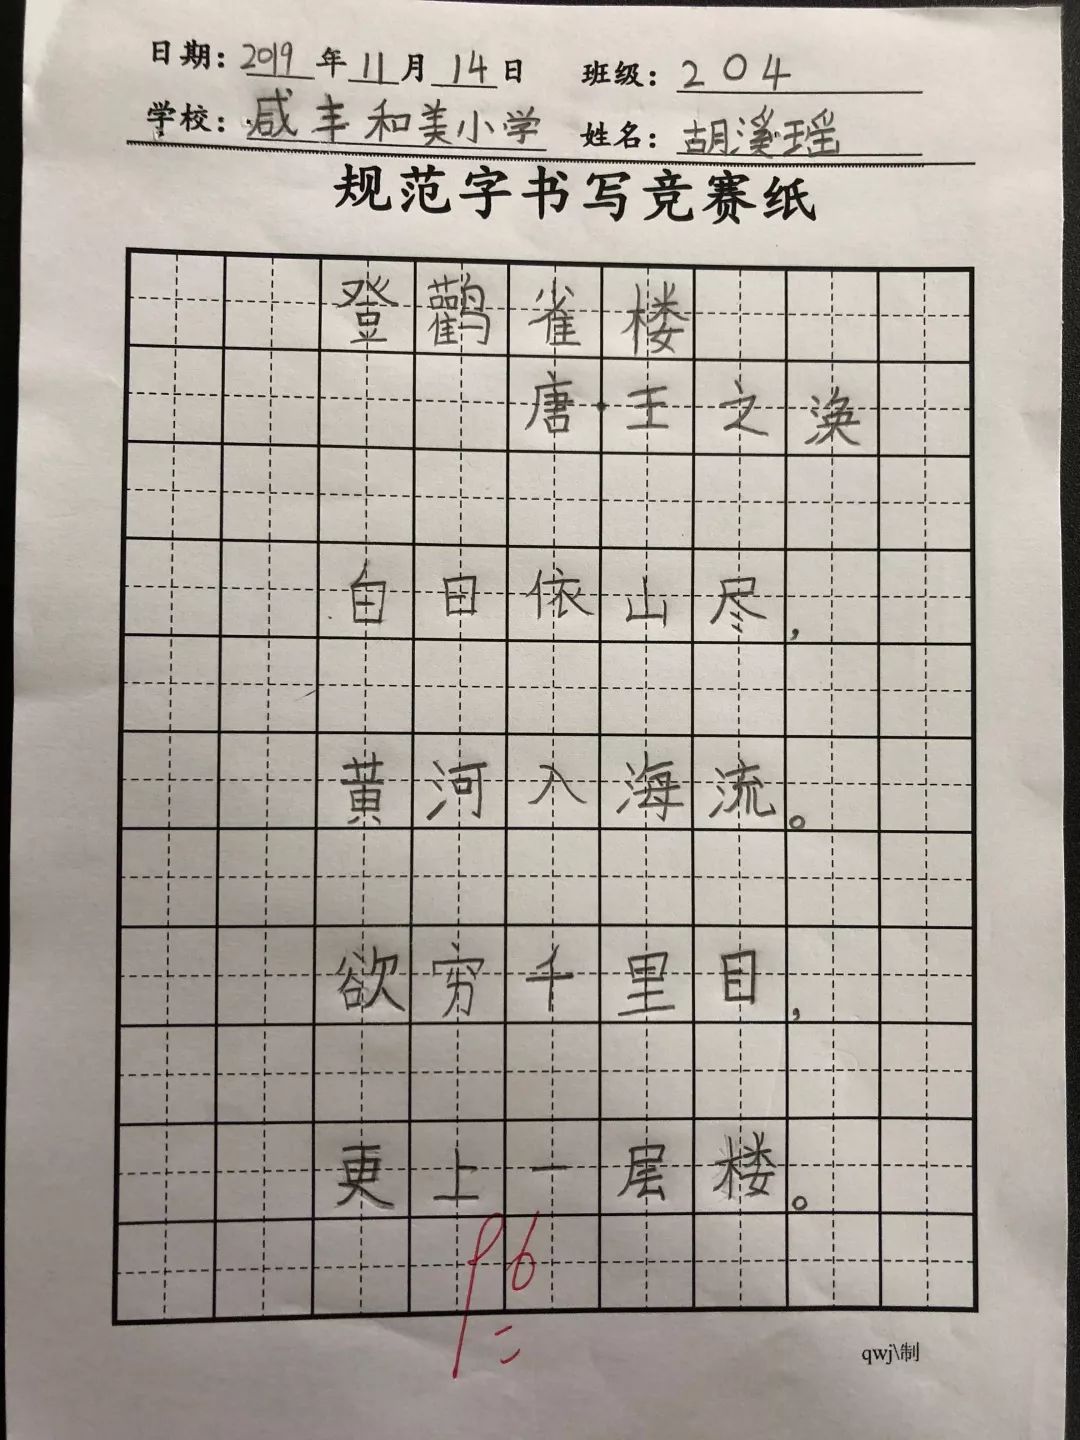 日期：2019年11月14日 班级：204
学校：咸丰和美小学 姓名：胡溪瑶
规范字书写竞赛纸
登鹳雀楼
唐·王之涣
白日依山尽，
黄河入海流。
欲穷千里目，
更上一层楼。
96
qwj\制